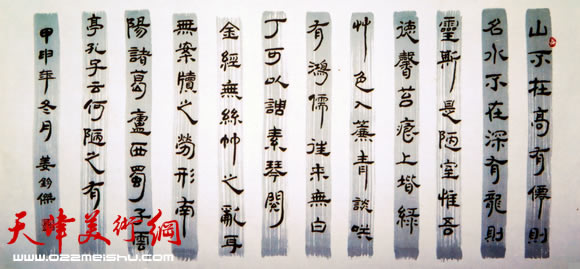 山不在高有僊則
名水不在深有龍則
靈斯是陋室惟吾
德馨苔痕上堦綠
艸色入簾青談咲
有鴻儒往来無白
丁可以調素琴閱
金經無絲竹之亂耳
無案牘之勞形南
陽諸葛廬西蜀子雲
亭孔子云何陋之有
甲申年冬月 姜鈞傑
天津美術網
www.022meishu.com